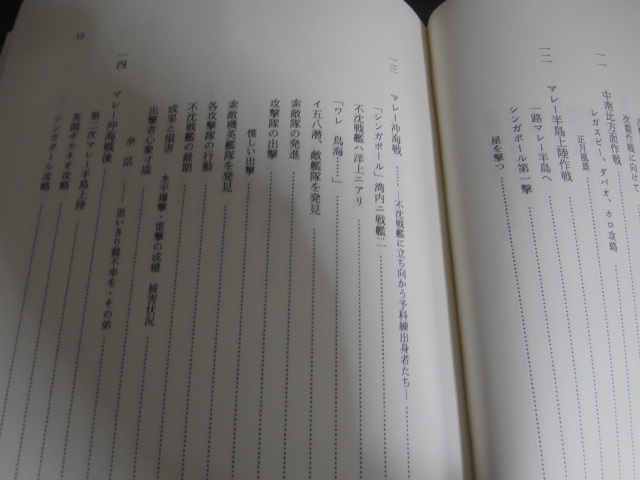 次期作戦に向けて
一一 中南比方面作戦
レガスピー、ダバオ、ホロ攻略
正月風景
一二 マレー半島上陸作戦
一路マレー半島へ
シンガポール第一撃
星を撃つ
一三 マレー沖海戦……不沈戦艦に立ち向かう予科練出身者たち―
「シンガポール」湾内ニ戦艦二
不沈戦艦ハ洋上ニアリ
「ワレ 鳥海……」
イ五八潜、敵艦隊を発見
索敵隊の発進
攻撃隊の出撃
慌しい出撃
索敵機英艦隊を発見
各攻撃隊の行動
不沈戦艦の最期
成果と損害 水平爆撃・雷撃の成績 被害状況
出撃者心象寸描
余話 思いきり親不幸を・その弟
一四 マレー沖海戦後
第二次マレー半島上陸
英領ボルネオ攻略
シンガポール攻略
13